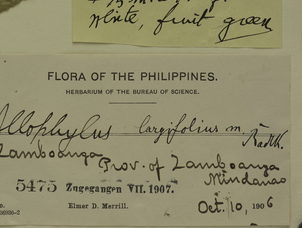 White, fruit green
FLORA OF THE PHILIPPINES.
HERBARIUM OF THE BUREAU OF SCIENCE.
Allophylus largifolius m. Radlk.
Zamboanga
Prov. of Zamboanga
Mindanao
5475 Zugegangen VII. 1907.
Elmer D. Merrill.
Oct. 10, 1906